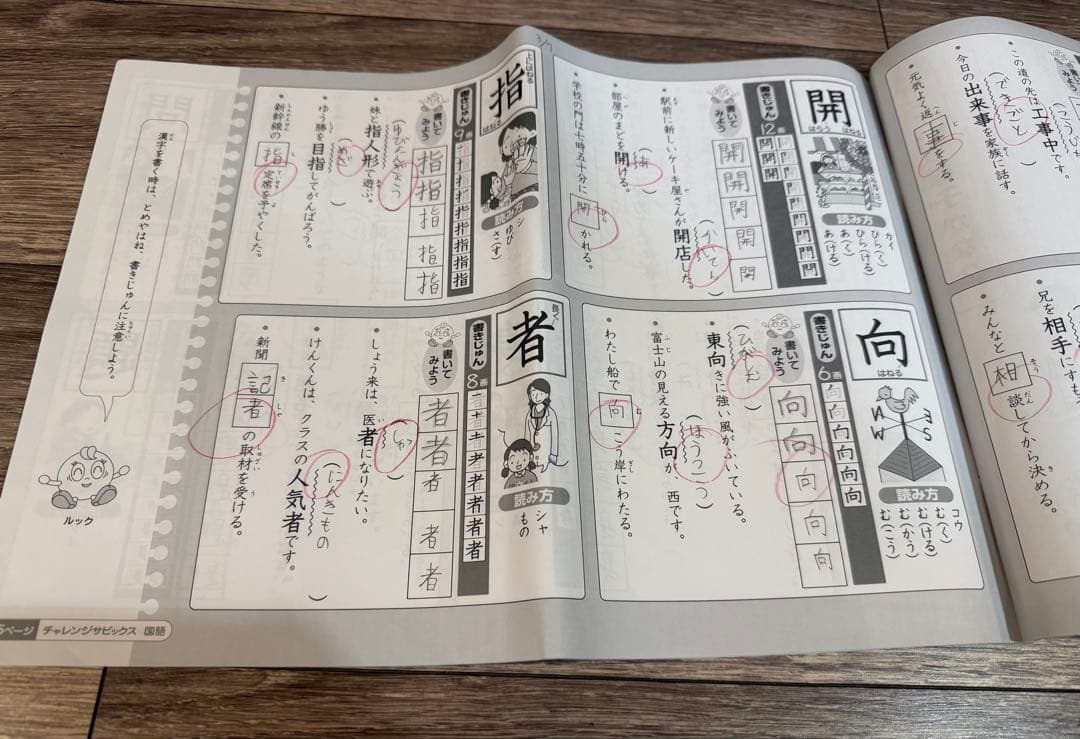 この道の先は工事中です。
今日の出来事を家族に話す。
(できごと)
元気よく返事をする。
じ
兄を相手にす
みんなと相談してから決める。
そう だん
3/7
開
はらう はねる
読み方
カイ
ひら(く)
ひら(ける)
あ(く)
あ(ける)
書きじゅん 12画
書いてみよう
開 開 開 開 開
駅前に新しいケーキ屋さんが開店した。
(かいてん)
部屋のまどを開ける。
学校の門は七時五十分に開かれる。
ひら
向
はねる
N E W S
読み方
コウ
む(く)
む(ける)
む(かう)
む(こう)
書きじゅん 6画
書いてみよう
向 向 向 向 向
東向きに強い風がふいている。
(ひがしむ)
富士山の見える方向が、西です。
ふじ
(ほうこう)
わたし船で向こう岸にわたる。
む きし
指
上にはねる
はねる
読み方
シ
ゆび
さ(す)
書きじゅん 9画
書いてみよう
指 指 指 指 指
妹と指人形で遊ぶ。
(ゆびにんぎょう)
ゆう勝を目指してがんばろう。
(めざ)
新幹線の指定席を予やくした。
しんかんせん
者
長く
読み方
シャ
もの
書きじゅん 8画
書いてみよう
者 者 者 者 者
しょう来は、医者になりたい。
(しゃ)
けんくんは、クラスの人気者です。
(にんきもの)
新聞記者の取材を受ける。
き しゃ
漢字を書く時は、とめやはね、書きじゅんに注意しよう。
ルック
5ページ チャレンジサピックス 国語